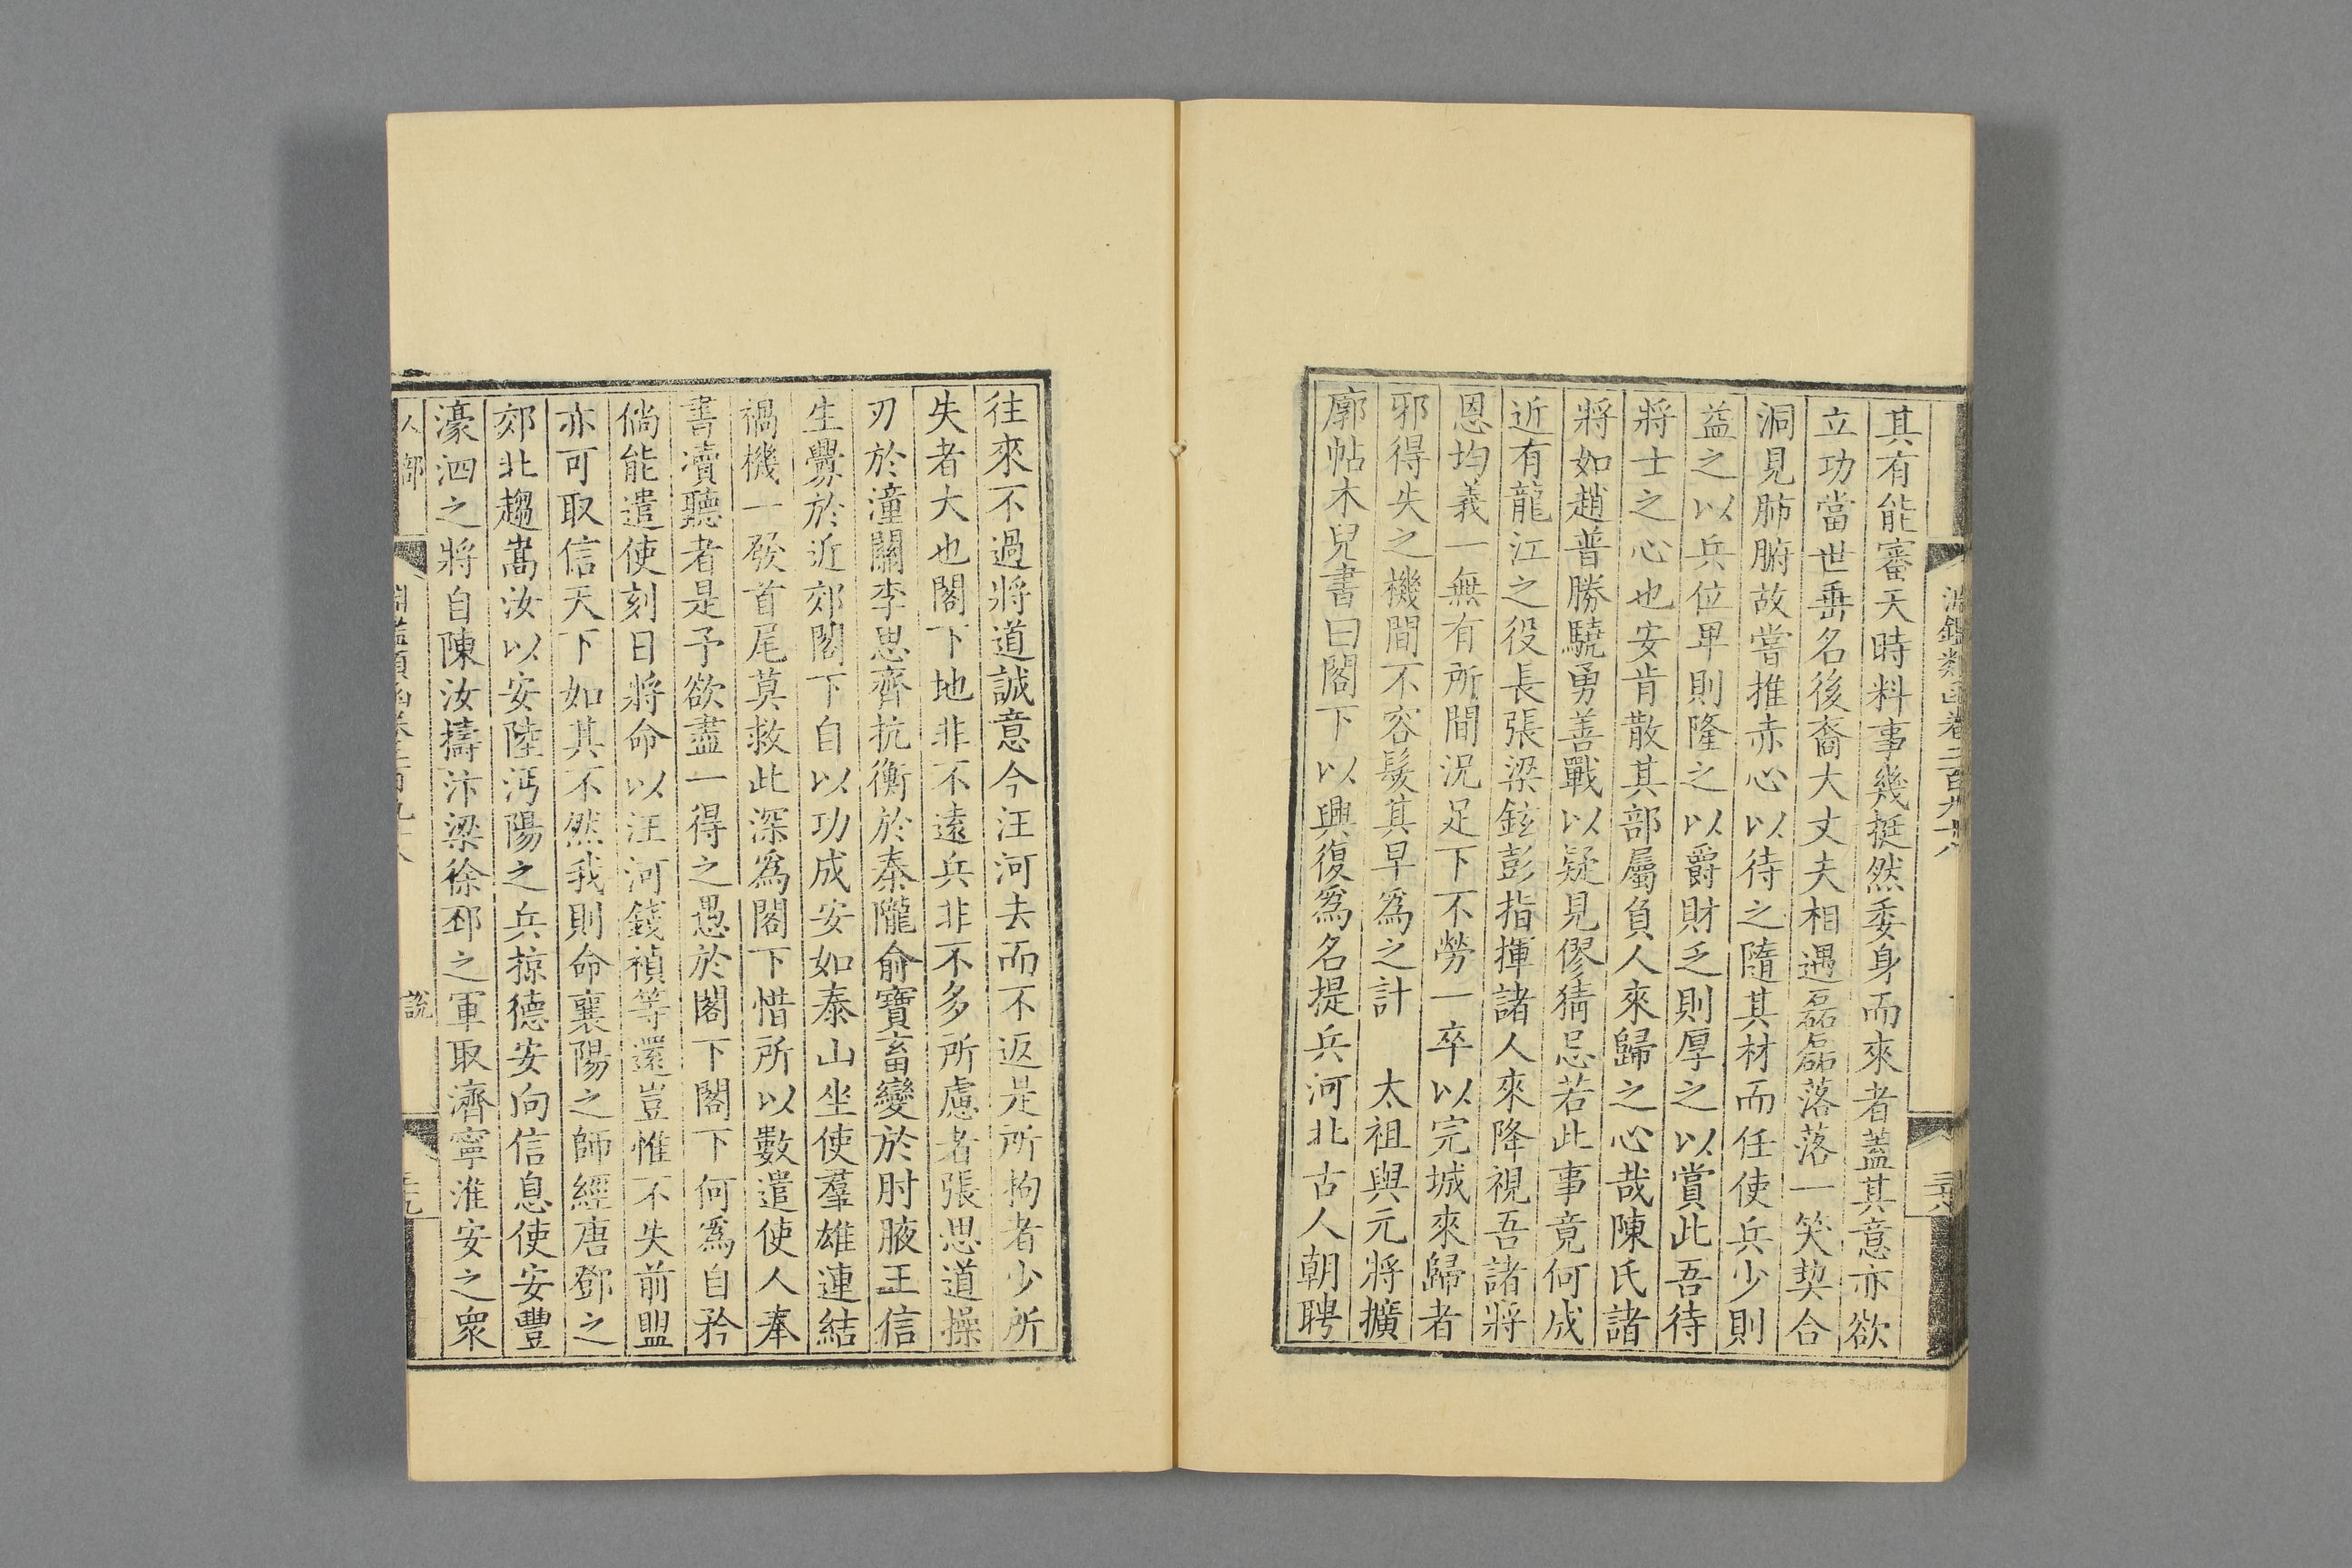 淵鑑類函卷二百九十八
其有能審天時料事幾挺然委身而來者蓋其意亦欲
立功當世垂名後裔大丈夫相遇磊磊落落一笑契合
洞見肺腑故嘗推赤心以待之隨其材而任使兵少則
益之以兵位卑則隆之以爵財乏則厚之以賞此吾待
將士之心也安肯散其部屬負人來歸之心哉陳氏諸
將如趙普勝驍勇善戰以疑見僇猜忌若此事竟何成
近有龍江之役長張梁鉉彭指揮諸人來降視吾諸將
恩均義一無有所間況足下不勞一卒以完城來歸者
邪得失之機間不容髮其早為之計　太祖與元將擴
廓帖木兒書曰閣下以興復為名提兵河北古人朝聘
往來不過將道誠意今汪河去而不返是所拘者少所
失者大也閣下地非不遠兵非不多所慮者張思道操
刃於潼關李思齊抗衡於秦隴俞寶畜變於肘腋王信
生釁於近郊閣下自以功成安如泰山坐使羣雄連結
禍機一發首尾莫救此深為閣下惜所以數遣使人奉
書瀆聽者是予欲盡一得之愚於閣下閣下何為自矜
倘能遣使刻日將命以汪河錢禎等還豈惟不失前盟
亦可取信天下如其不然我則命襄陽之師經唐鄧之
郊北趨嵩汝以安陸沔陽之兵掠德安向信息使安豐
濠泗之將自陳汝擣汴梁徐邳之軍取濟寧淮安之眾
人部　淵鑑類函卷二百九十八　說